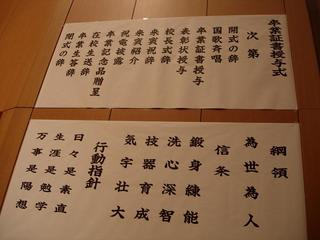 卒業証書授与式
次第
開式の辞
国歌斉唱
卒業証書授与
表彰状授与
校長式辞
来賓祝辞
来賓紹介
祝電披露
卒業記念品贈呈
在校生送辞
卒業生答辞
閉式の辞
綱領
為世為人
信条
鍛身練能
洗心深智
技器育成
気宇壮大
行動指針
日々是素直
生涯是勉学
万事是陽想